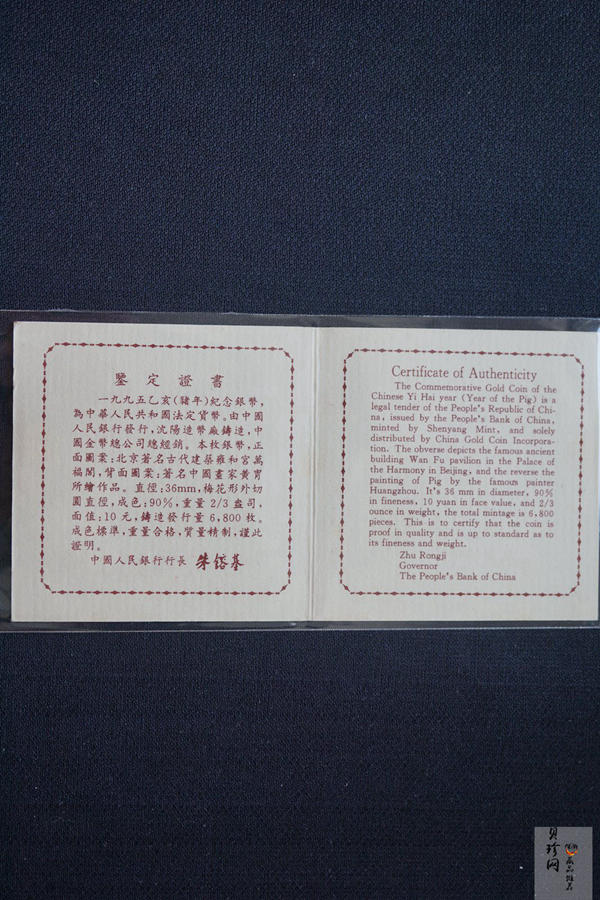 鑒定證書
一九九五乙亥(豬年)紀念銀幣,
為中華人民共和國法定貨幣。由中國
人民銀行發行,沈陽造幣廠鑄造,中
國金幣總公司總經銷。本枚銀幣,正
面圖案:北京著名古代建築雍和宮萬
福閣,背面圖案:著名中國畫家黃冑
所繪作品。直徑:36mm,梅花形外切
圓直徑,成色:90%,重量2/3盎司,
面值:10元,鑄造發行量6,800枚。
成色標準,重量合格,質量精制,謹此
證明。
中國人民銀行行長 朱鎔基
Certificate of Authenticity
The Commemorative Gold Coin of the
Chinese Yi Hai year (Year of the Pig) is a
legal tender of the People's Republic of Chi-
na, issued by the People's Bank of China,
minted by Shenyang Mint, and solely
distributed by China Gold Coin Incorpora-
tion. The obverse depicts the famous ancient
building Wan Fu pavilion in the Palace of
the Harmony in Beijing, and the reverse the
painting of Pig by the famous painter
Huangzhou. It's 36 mm in diameter, 90%
in fineness, 10 yuan in face value, and 2/3
ounce in weight, the total mintage is 6,800
pieces. This is to certify that the coin is
proof in quality and is up to standard as to
its fineness and weight.
Zhu Rongji
Governor
The People's Bank of China
贝珍网